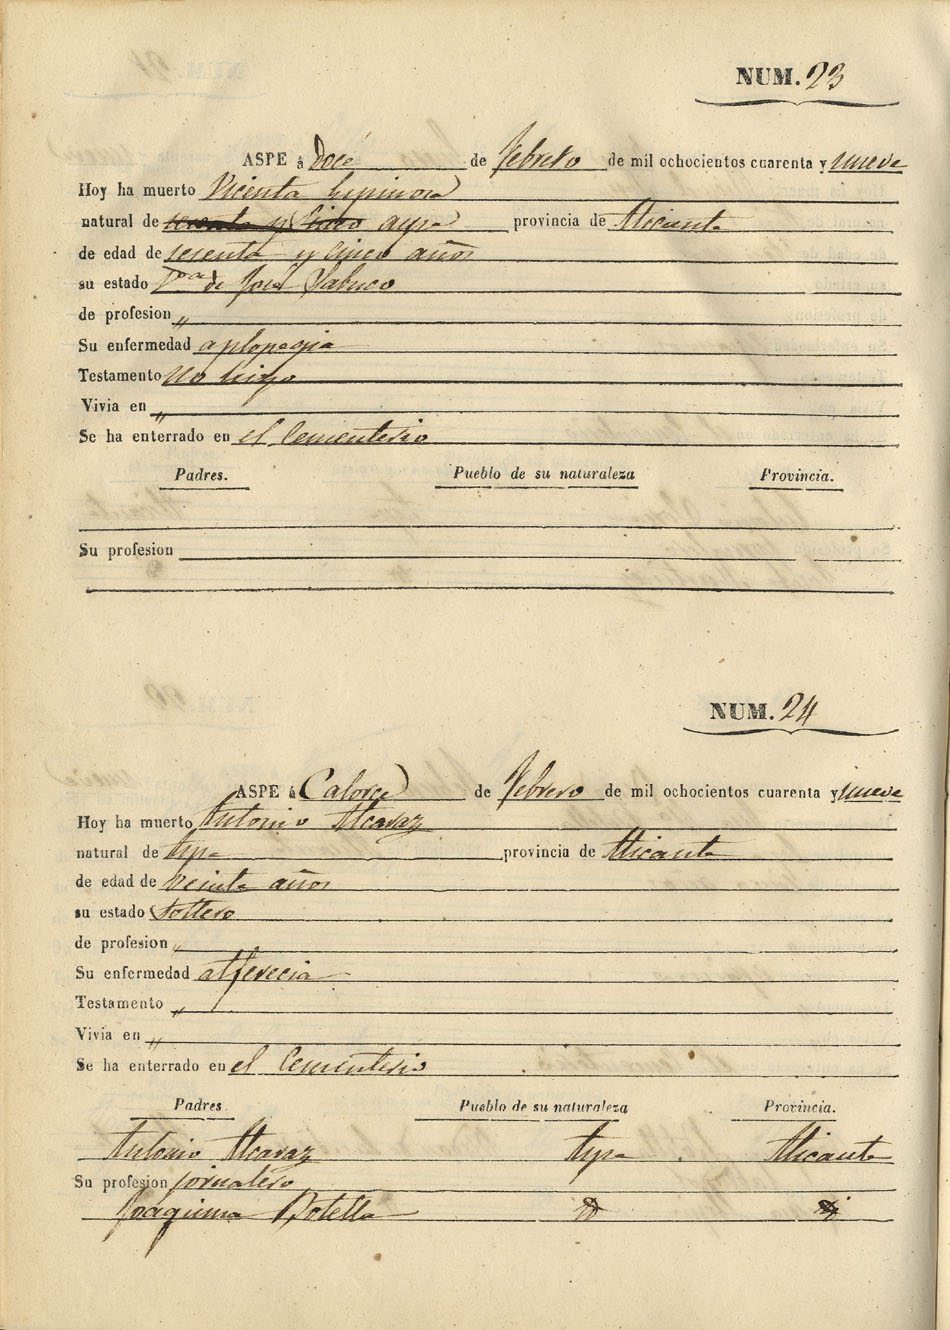 NUM. 23
ASPE á Doce de febrero de mil ochocientos cuarenta y nueve
Hoy ha muerto Vicenta Espinosa
natural de sesenta y Cinco aspe provincia de Alicante
de edad de sesenta y cinco años
su estado Vda de José Pabuco
de profesion „
Su enfermedad aplopegia
Testamento no hizo
Vivia en „
Se ha enterrado en el Cementerio
Padres. Pueblo de su naturaleza Provincia.
Su profesion
NUM. 24
ASPE á Catorce de febrero de mil ochocientos cuarenta y nueve
Hoy ha muerto Antonio Alcaraz
natural de Aspe provincia de Alicante
de edad de veinte años
su estado Soltero
de profesion „
Su enfermedad alferecia
Testamento „
Vivia en „
Se ha enterrado en el Cementerio
Padres Pueblo de su naturaleza Provincia.
Antonio Alcaraz Aspe Alicante
Su profesion jornalero
Joaquina Botella